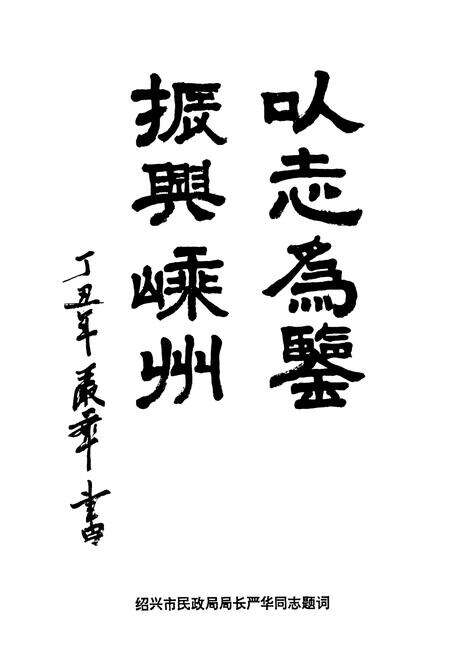 以志為鑒
振興嵊州
丁丑年嚴華書
绍兴市民政局局长严华同志题词